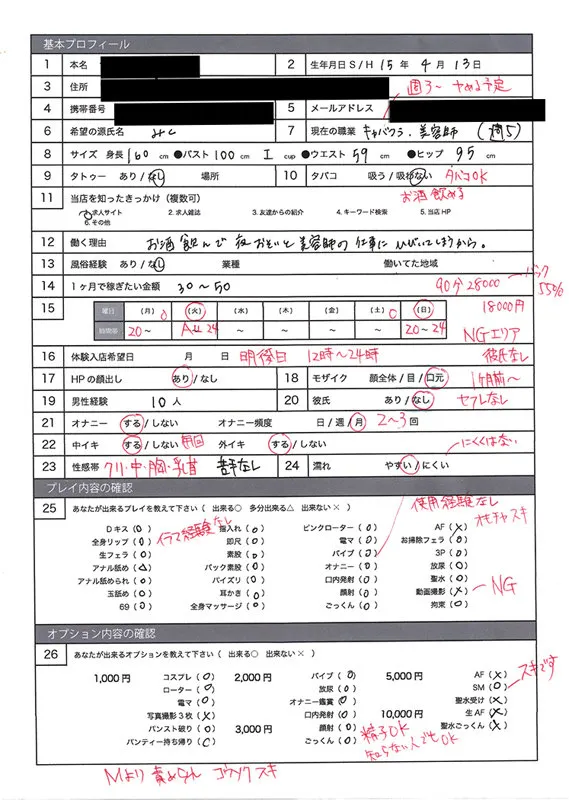 基本プロフィール
1 本名
2 生年月日 S / H 15 年 4 月 13 日
3 住所
週3~ やめる予定
4 携帯番号
5 メールアドレス
6 希望の源氏名
7 現在の職業 キャバクラ・美容師 (週5)
8 サイズ 身長 160 cm ●バスト 100 cm I cup ●ウエスト 59 cm ●ヒップ 95 cm
9 タトゥー あり / なし 場所
10 タバコ 吸う / 吸わない タバコOK
11 当店を知ったきっかけ(複数可)
お酒飲める
1. 求人サイト 2. 求人雑誌 3. 友達からの紹介 4. キーワード検索 5. 当店HP
6. その他
12 働く理由 お酒飲んで夜おそいと美容師の仕事にひびいてしまうから。
13 風俗経験 あり / なし 業種 働いてた地域
14 1ヶ月で稼ぎたい金額 30~50
90分 28000 バック 55%
18000円
15 曜日 (月) (火) (水) (木) (金) (土) (日)
時間帯 20~ 24 20~24
NGエリア
16 体験入店希望日 月 日 明後日 12時~24時
彼氏なし
17 HPの顔出し あり / なし
18 モザイク 顔全体 / 目 / 口元
1ヶ月前~
19 男性経験 10 人
20 彼氏 あり / なし
セフレなし
21 オナニー する / しない オナニー頻度 日 / 週 / 月 2~3 回
22 中イキ する / しない 外イキ する / しない
にくくはない
23 性感帯 クリ・中・胸・乳首 苦手なし
24 濡れ やすい / にくい
プレイ内容の確認
使用経験なし
25 あなたが出来るプレイを教えて下さい ( 出来る○ 多分出来る△ 出来ない× )
オモチャスキ
イラマ経験なし
Dキス (○) 指入れ (○) ピンクローター (○) AF (×)
全身リップ (○) 即尺 (○) 電マ (○) お掃除フェラ (○)
生フェラ (○) 素股 (○) バイブ (○) 3P (○)
アナル舐め (△) バック素股 (○) オナニー (○) 放尿 (○)
アナル舐められ (○) パイズリ (○) 口内発射 (○) 聖水 (○)
玉舐め (○) 耳かき (○) 顔射 (○) 動画撮影 (×) NG
69 (○) 全身マッサージ (○) ごっくん (○) 拘束 (○)
オプション内容の確認
26 あなたが出来るオプションを教えて下さい ( 出来る○ 出来ない× )
スキです
1,000円 コスプレ (○) 2,000円 バイブ (○) 5,000円 AF (×)
ローター (○) 放尿 (○) SM (○)
電マ (○) オナニー鑑賞 (○) 聖水受け (×)
写真撮影3枚 (×) 口内発射 (○) 10,000円 生AF (×)
パンスト破り (○) 3,000円 顔射 (○) 聖水ごっくん (×)
パンティー持ち帰り (○) ごっくん (○)
精子OK
知らない人でもOK
Mより